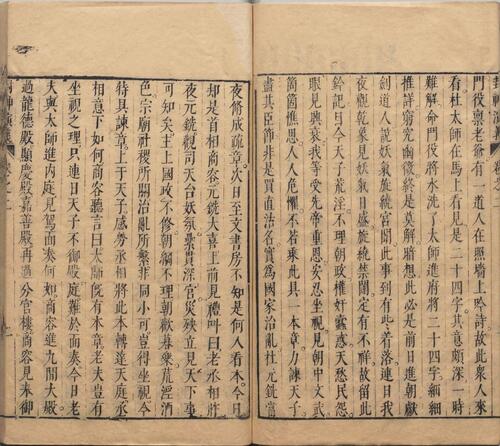 門役禀老爺有一道人在照墻上吟詩故此衆人來
看杜太師在馬上看見是二十四字其意頗深一時
難解命門役將水洗了太師進府將二十四字細細
推詳窮究幽微終是莫解暗想此必是前日進朝獻
劍道人說妖氣旋繞宮闈此事到有此若落連日我
夜觀乾象見妖氣日盛旋繞禁闥定有不祥故留此
鈐記目今天子荒淫不理朝政權奸蠱惑天愁民怨
眼見興衰我等受先帝重恩安忍坐視見朝中文武
箇箇憔思人人危懼不若乗此具一本章力諫天子
盡其臣節非是買直沽名實爲國家治亂杜元銑當
夜脩成疏章次日至文書房不知是何人看本今日
却是首相商容元銑大喜上前見禮叫曰老丞相昨
夜元銑觀司天台妖氛纍貫深宮灾殃立見天下事
可知矣主上國政不修朝綱不理朝歡暮樂荒淫酒
色宗廟社稷所關治亂所繫非同小可豈得坐視今
特具諫章上于天子感勞丞相將此本轉達天庭丞
相意下如何商容聽言曰太師旣有本章老夫豈有
坐視之理只連日天子不御殿庭難於面奏今日老
夫與太師進內庭見駕面奏何如商容進九間大殿
過龍德殿顯慶殿嘉善殿再過分宮樓商容見奉御